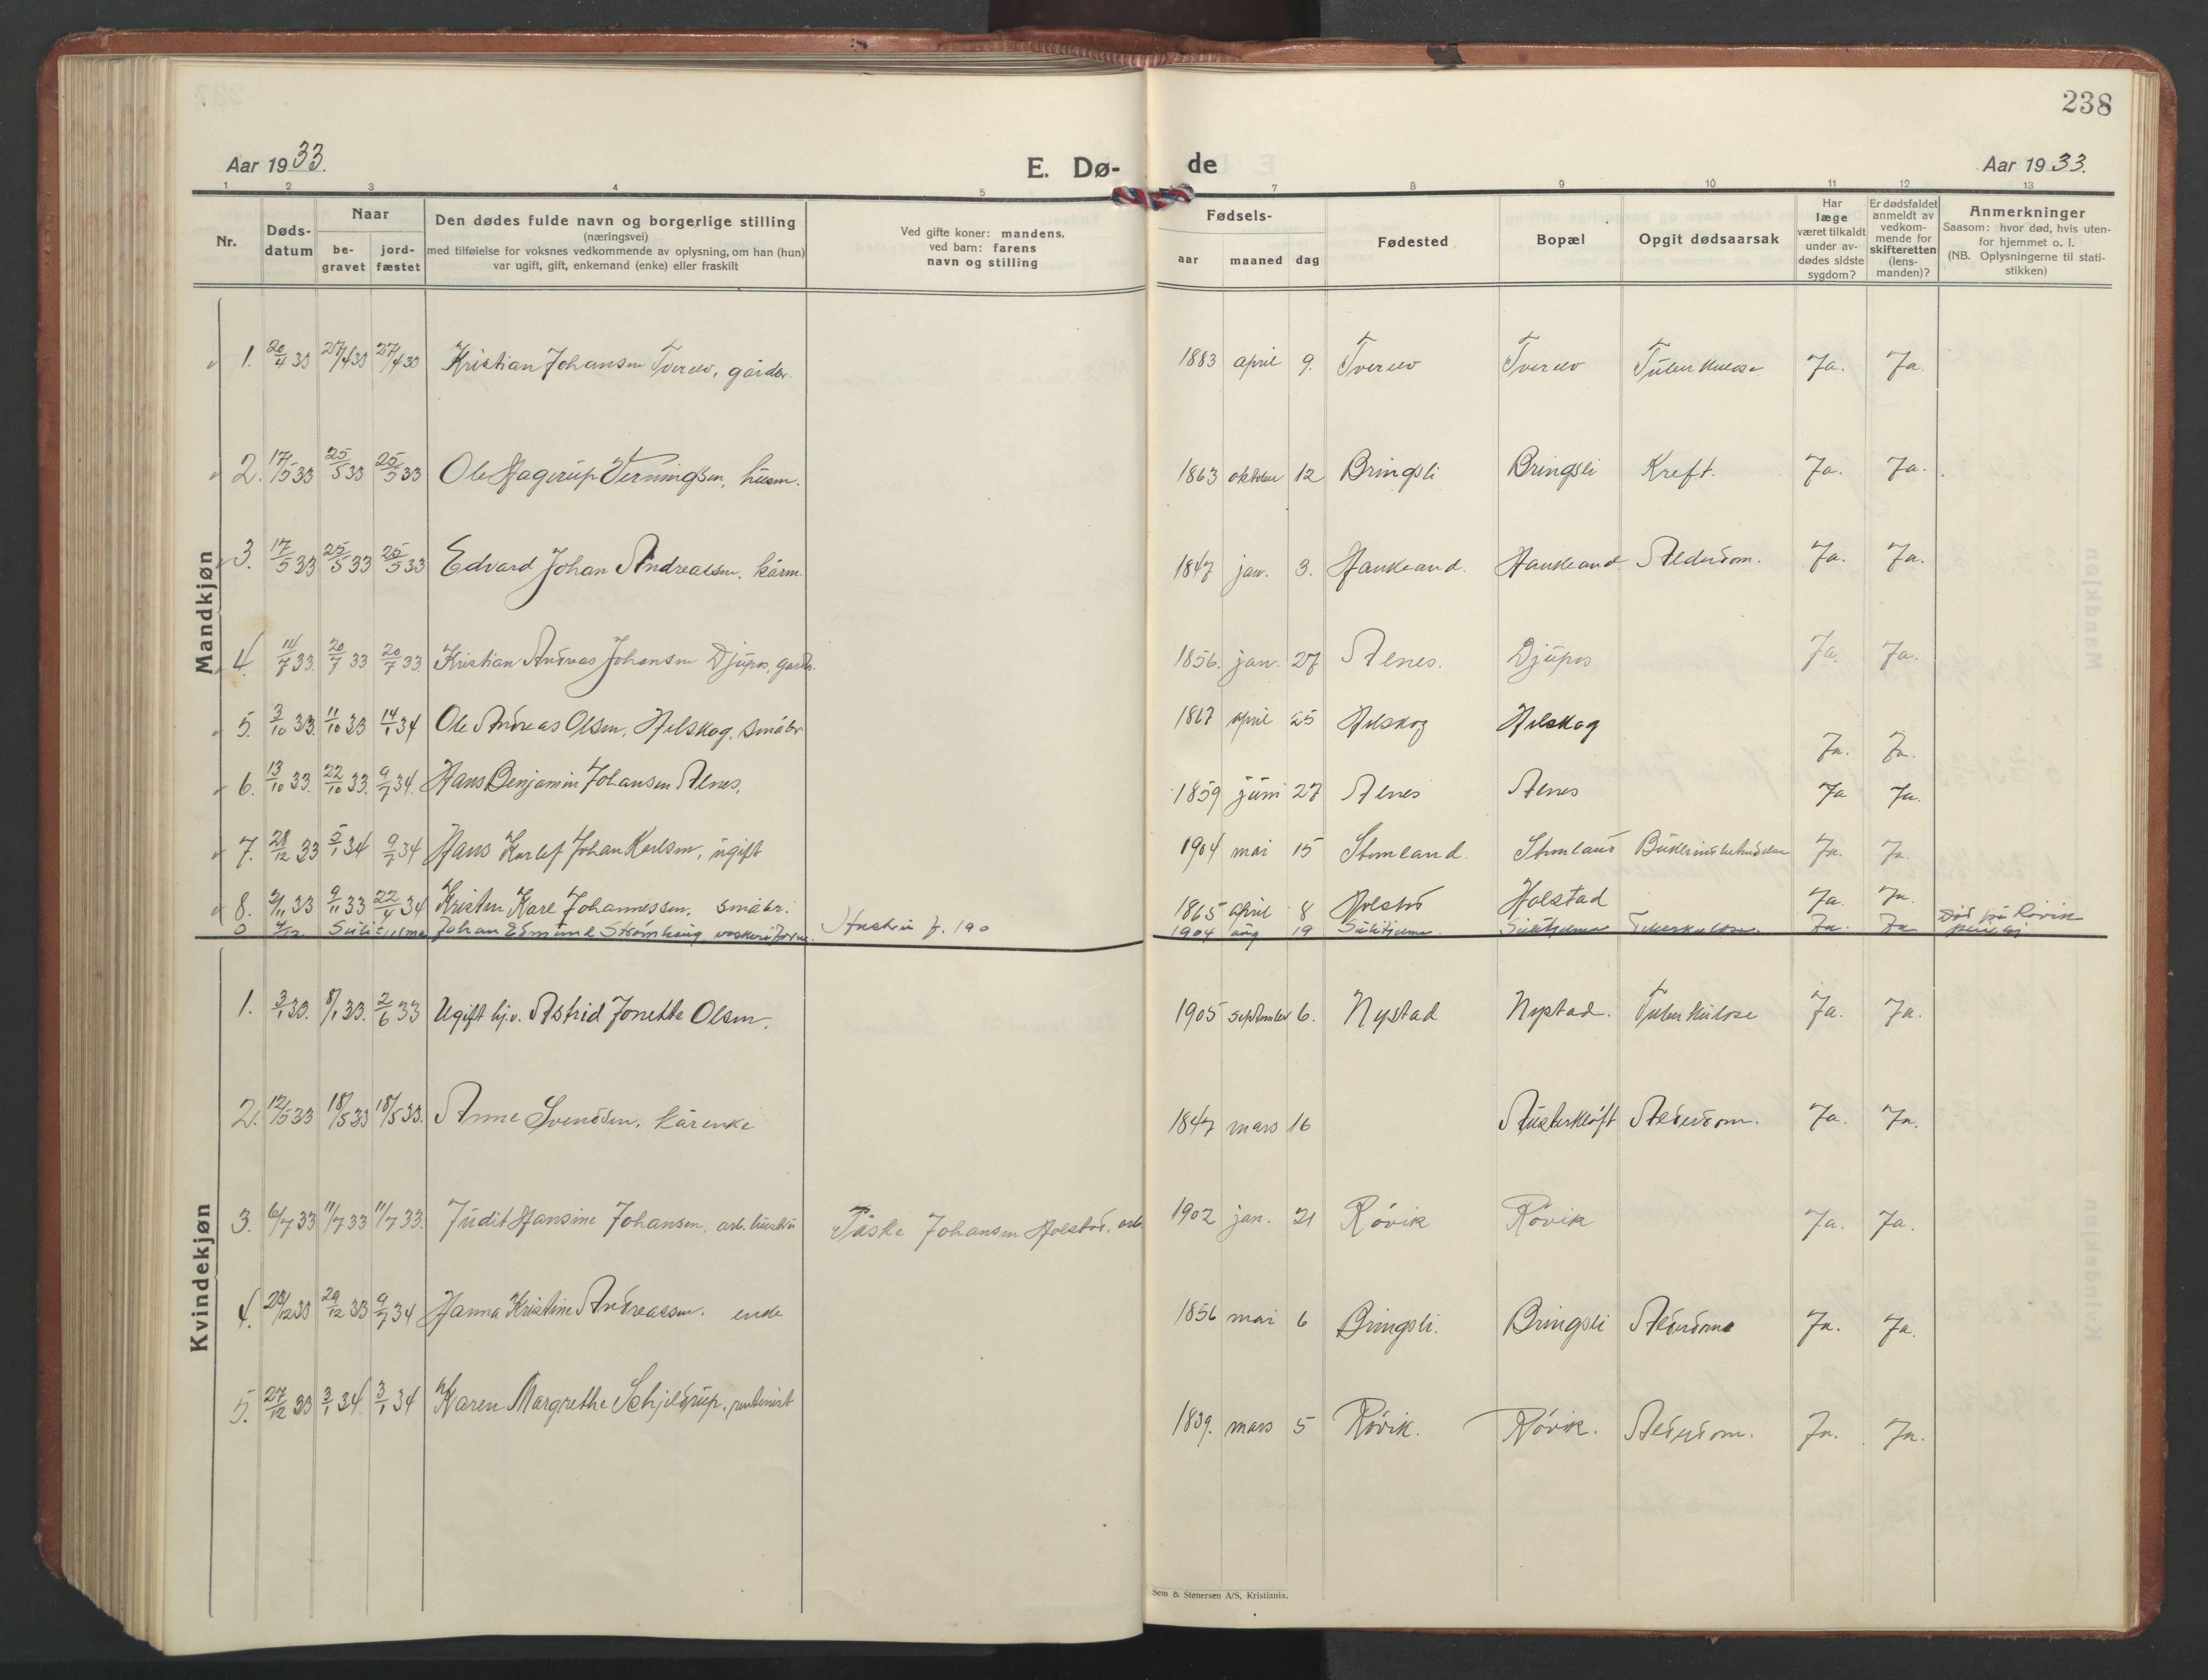 238
Aar 1933.
E. Dø-
de
Aar 1933.
1 2 3 4 5 7 8 9 10 11 12 13
Nr.
Døds-
datum
Naar
be-
gravet
jord-
fæstet
Den dødes fulde navn og borgerlige stilling
(næringsvei)
med tilføielse for voksnes vedkommende av oplysning, om han (hun)
var ugift, gift, enkemand (enke) eller fraskilt
Ved gifte koner: mandens,
ved barn: farens
navn og stilling
Fødsels-
aar maaned dag
Fødested
Bopæl
Opgit dødsaarsak
Har
læge
været tilkaldt
under av-
dødes sidste
sygdom?
Er dødsfaldet
anmeldt av
vedkom-
mende for
skifteretten
(lens-
manden)?
Anmerkninger
Saasom: hvor død, hvis uten-
for hjemmet o. l.
(NB. Oplysningerne til stati-
stikken)
Mandkjøn
1. 20/4 33 27/4 33 27/4 33 Kristian Johansen Tverelv, gårdbr. 1883 april 9. Tverelv Tverelv Tuberkulose Ja. Ja.
2. 17/5 33 25/5 33 25/5 33 Ole Hagerup Verningsen, husm. 1863 oktober 12 Bringsli Bringsli Kreft. Ja. Ja.
3. 17/5 33 25/5 33 25/5 33 Edvard Johan Andreassen, kårm. 1847 jan. 3. Haukeand. Haukeand Alderdom. Ja. Ja.
4. 14/7 33. 20/7 33 20/7 33. Kristian Andreas Johansen Djupos, gårdbr. 1856. jan. 27 Alnes. Djupos Ja. Ja.
5. 3/10 33. 11/10 33 14/1 34 Ole Andreas Olsen, Hilskog, småbr 1867 april 25 Hilskog Hilskog Ja. Ja.
6. 13/10 33. 22/10 33. 9/7 34. Hans Benjamin Johansen Alnes. 1859 juni 27 Alnes Alnes Ja Ja.
7. 28/12 33 5/1 34 9/7 34 Hans Karlof Johan Karlsen, ugift 1904 mai 15 Storland. Storland Ja. Ja.
8. 2/11 33 9/11 33 22/4 34 Kristen Karl Johannessen, småbr. 1865 april 8 Holstad Holstad Ja. Ja.
0 Sulitjelma Johan Edmund Strømhaug, Hustru f. 190 1904 aug 19 Sulitjelma Sulitjelma Tuberkulose. Ja. Ja Død på Røvik
pleiehj
Kvindekjøn
1. 3/1 33. 8/1 33. 2/6 33 Ugift hj.v. Astrid Jonette Olsen. 1905 september 6. Nystad Nystad. Tuberkulose Ja. Ja.
2. 12/5 33 18/5 33 18/5 33. Anne Svendsen, kårenke 1847 mars 16 Austerkløft Alderdom. Ja. Ja.
3. 6/7 33 11/7 33 11/7 33. Judit Hansine Johansen, arb. hustru Påske Johansen Holstad, arb 1902 jan. 21 Røvik Røvik Ja. Ja.
4. 23/12 33 29/12 33 9/7 34 Hanna Kristine Andreassen. enke 1856 mai 6 Bringsli. Bringsli Alderdom Ja. Ja.
5. 27/12 33 3/1 34 3/1 34 Karen Margrethe Schjeldrup, pensionist 1839. mars 5 Røvik. Røvik. Alderdom. Ja. Ja.
Sem & Stenersen A/S, Kristiania.